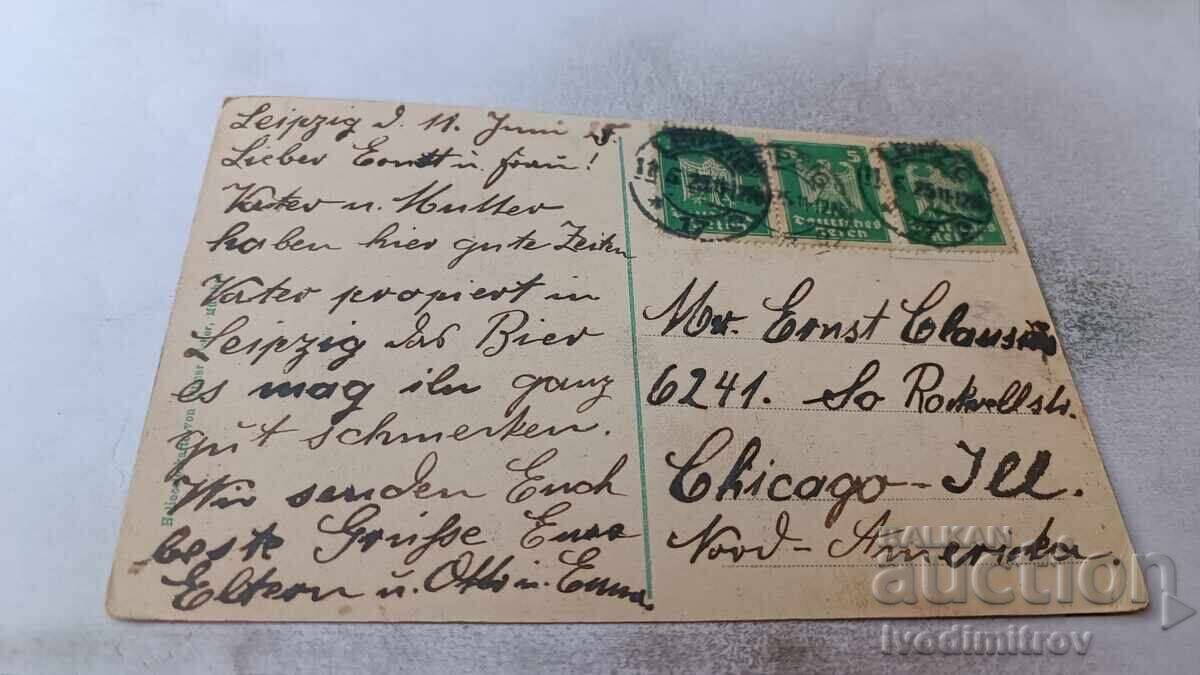 Leipzig d. 11. Juni 25.
Lieber Ernst u. frau!
Vater u. Mutter
haben hier gute Zeiten
Vater propiert in
Leipzig das Bier
es mag ihn ganz
gut schmerken.
Wir senden Euch
beste Grüße Eure
Eltern u. Otto u. Emma.
5 5
Deutsches
Reich
Mr. Ernst Clausius
6241. So Rockwellstr.
Chicago-Ill.
Nord-Amerricka.
BALKAN
auction
ivodimitrov